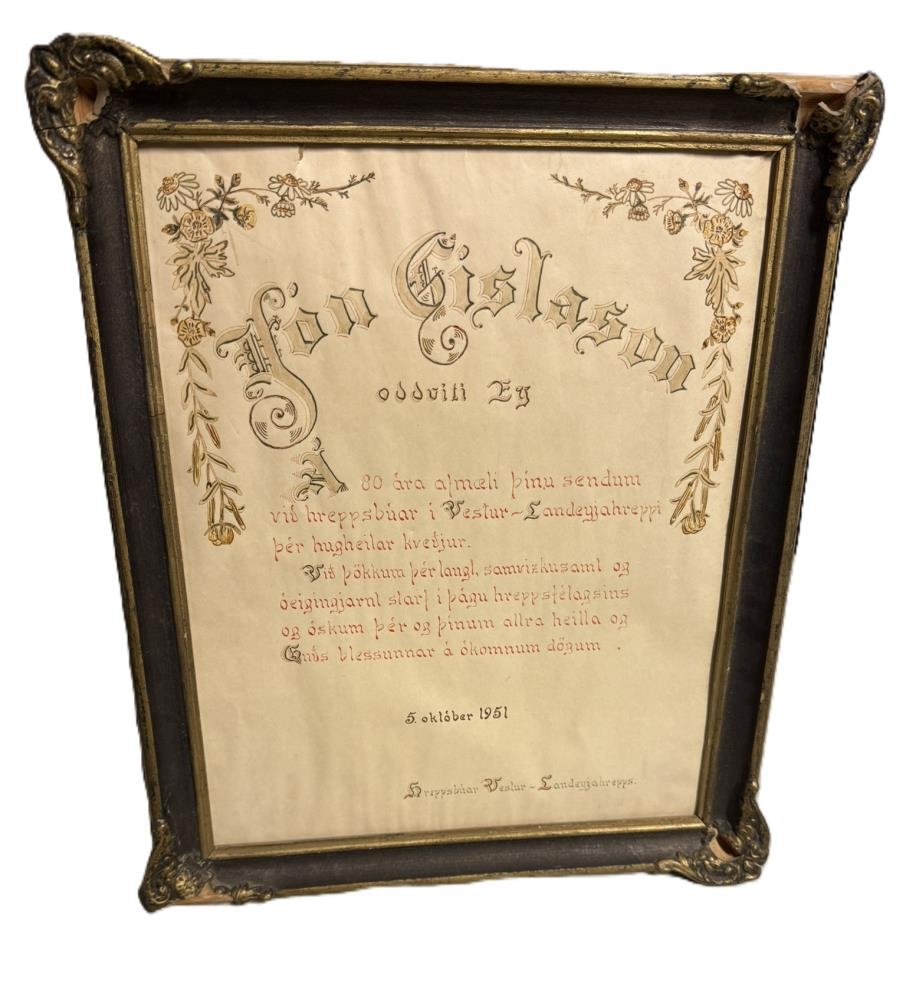 Jón Gíslason
oddviti Ey
Á 80 ára afmæli þínu sendum
við hreppsbúar í Vestur-Landeyjahreppi
þér hugheilar kveðjur.
Við þökkum þér langt, samvizkusamt og
óeigingjarnt starf í þágu hreppsfélagsins
og óskum þér og þínum allra heilla og
Guðs blessunnar á ókomnum dögum .
5. október 1951
Hreppsbúar Vestur-Landeyjahrepps.